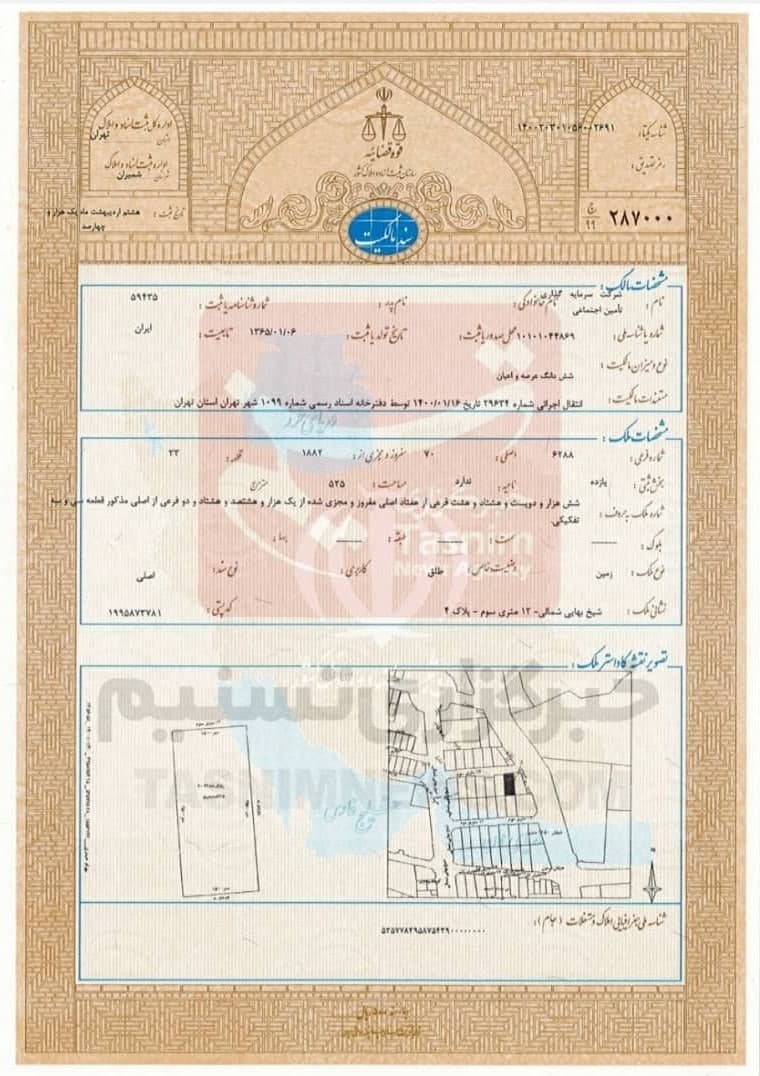 قوه قضائیه
سازمان ثبت اسناد و املاک کشور
اداره کل ثبت اسناد و املاک
استان: تهران
اداره ثبت اسناد و املاک
شمیران
تاریخ ثبت: هشتم اردیبهشت ماه یک هزار و چهارصد
شناسه یکتا: ۱۴۰۰۲۰۳۰۱۰۵۶۰۰۲۶۹۱
رمز تصدیق:
۲۸۷۰۰۰
ج ۹۹
سند مالکیت
مشخصات مالک:
نام: شرکت سرمایه گذاری تأمین اجتماعی نام خانوادگی: نام پدر: شماره شناسنامه یا ثبت: ۵۹۴۳۵
شماره یا شناسه ملی: ۱۰۱۰۱۰۴۴۸۶۹ محل صدور یا ثبت: تاریخ تولد یا ثبت: ۱۳۶۵/۰۱/۰۶ تابعیت: ایران
نوع و میزان مالکیت: شش دانگ عرصه و اعیان
مستندات مالکیت: انتقال اجرائی شماره ۲۹۶۳۴ تاریخ ۱۴۰۰/۰۱/۱۶ توسط دفترخانه اسناد رسمی شماره ۱۰۹۹ شهر تهران استان تهران
دریای خزر
مشخصات ملک:
شماره فرعی: ۶۲۸۸ اصلی: ۷۰ مفروز و مجزی از: ۱۸۸۲ قطعه: ۲۳
بخش ثبتی: یازده ناحیه: ندارد مساحت: ۵۲۵ مترمربع
شماره ملک به حروف: شش هزار و دویست و هشتاد و هشت فرعی از هفتاد اصلی مفروز و مجزی شده از یک هزار و هشتصد و هشتاد و دو فرعی از اصلی مذکور قطعه سی و سه تفکیکی.
بلوک: سمت: طبقه:
نوع ملک: زمین وضعیت خاص: طلق کاربری: نوع سند: اصلی
نشانی ملک: شیخ بهایی شمالی- ۱۲ متری سوم - پلاک ۴ کدپستی: ۱۹۹۵۸۷۳۷۸۱
تصویر نقشه کاداستر ملک:
خلیج فارس
شناسه ملی جغرافیایی املاک و مستغلات (جام):
خبرگزاری تسنیم
Tasnim
News Agency
TASNIMNEWS.COM